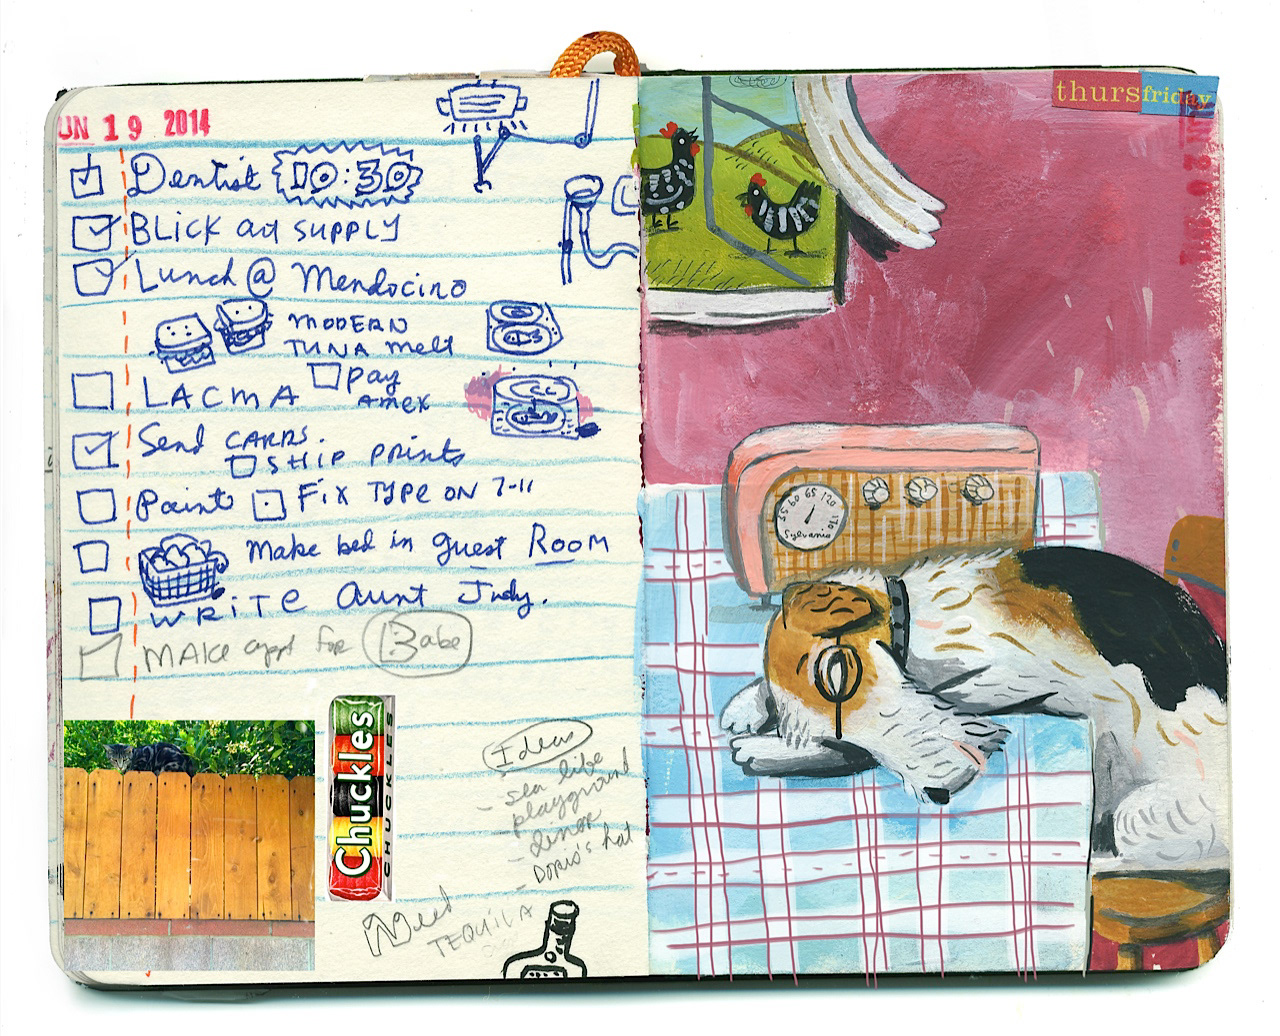 UN 19 2014
Dentist 10:30
BLick art SUPPLY
Lunch @ Mendocino
MODERN
TUNA melt
LACMA
pay
Amex
Send CARDS.
SHIP prints
Paint
Fix TYPE ON 7-11
Make bed in guest Room
WRiTe Aunt Judy.
MAKe appt for Babe
Chuckles
CHUCKLES
Ideas
- sea life
- playground
- diner
- Doris's hat
Need
TEQUILA
thursfriday
55 60 65 120 170
Sylvania